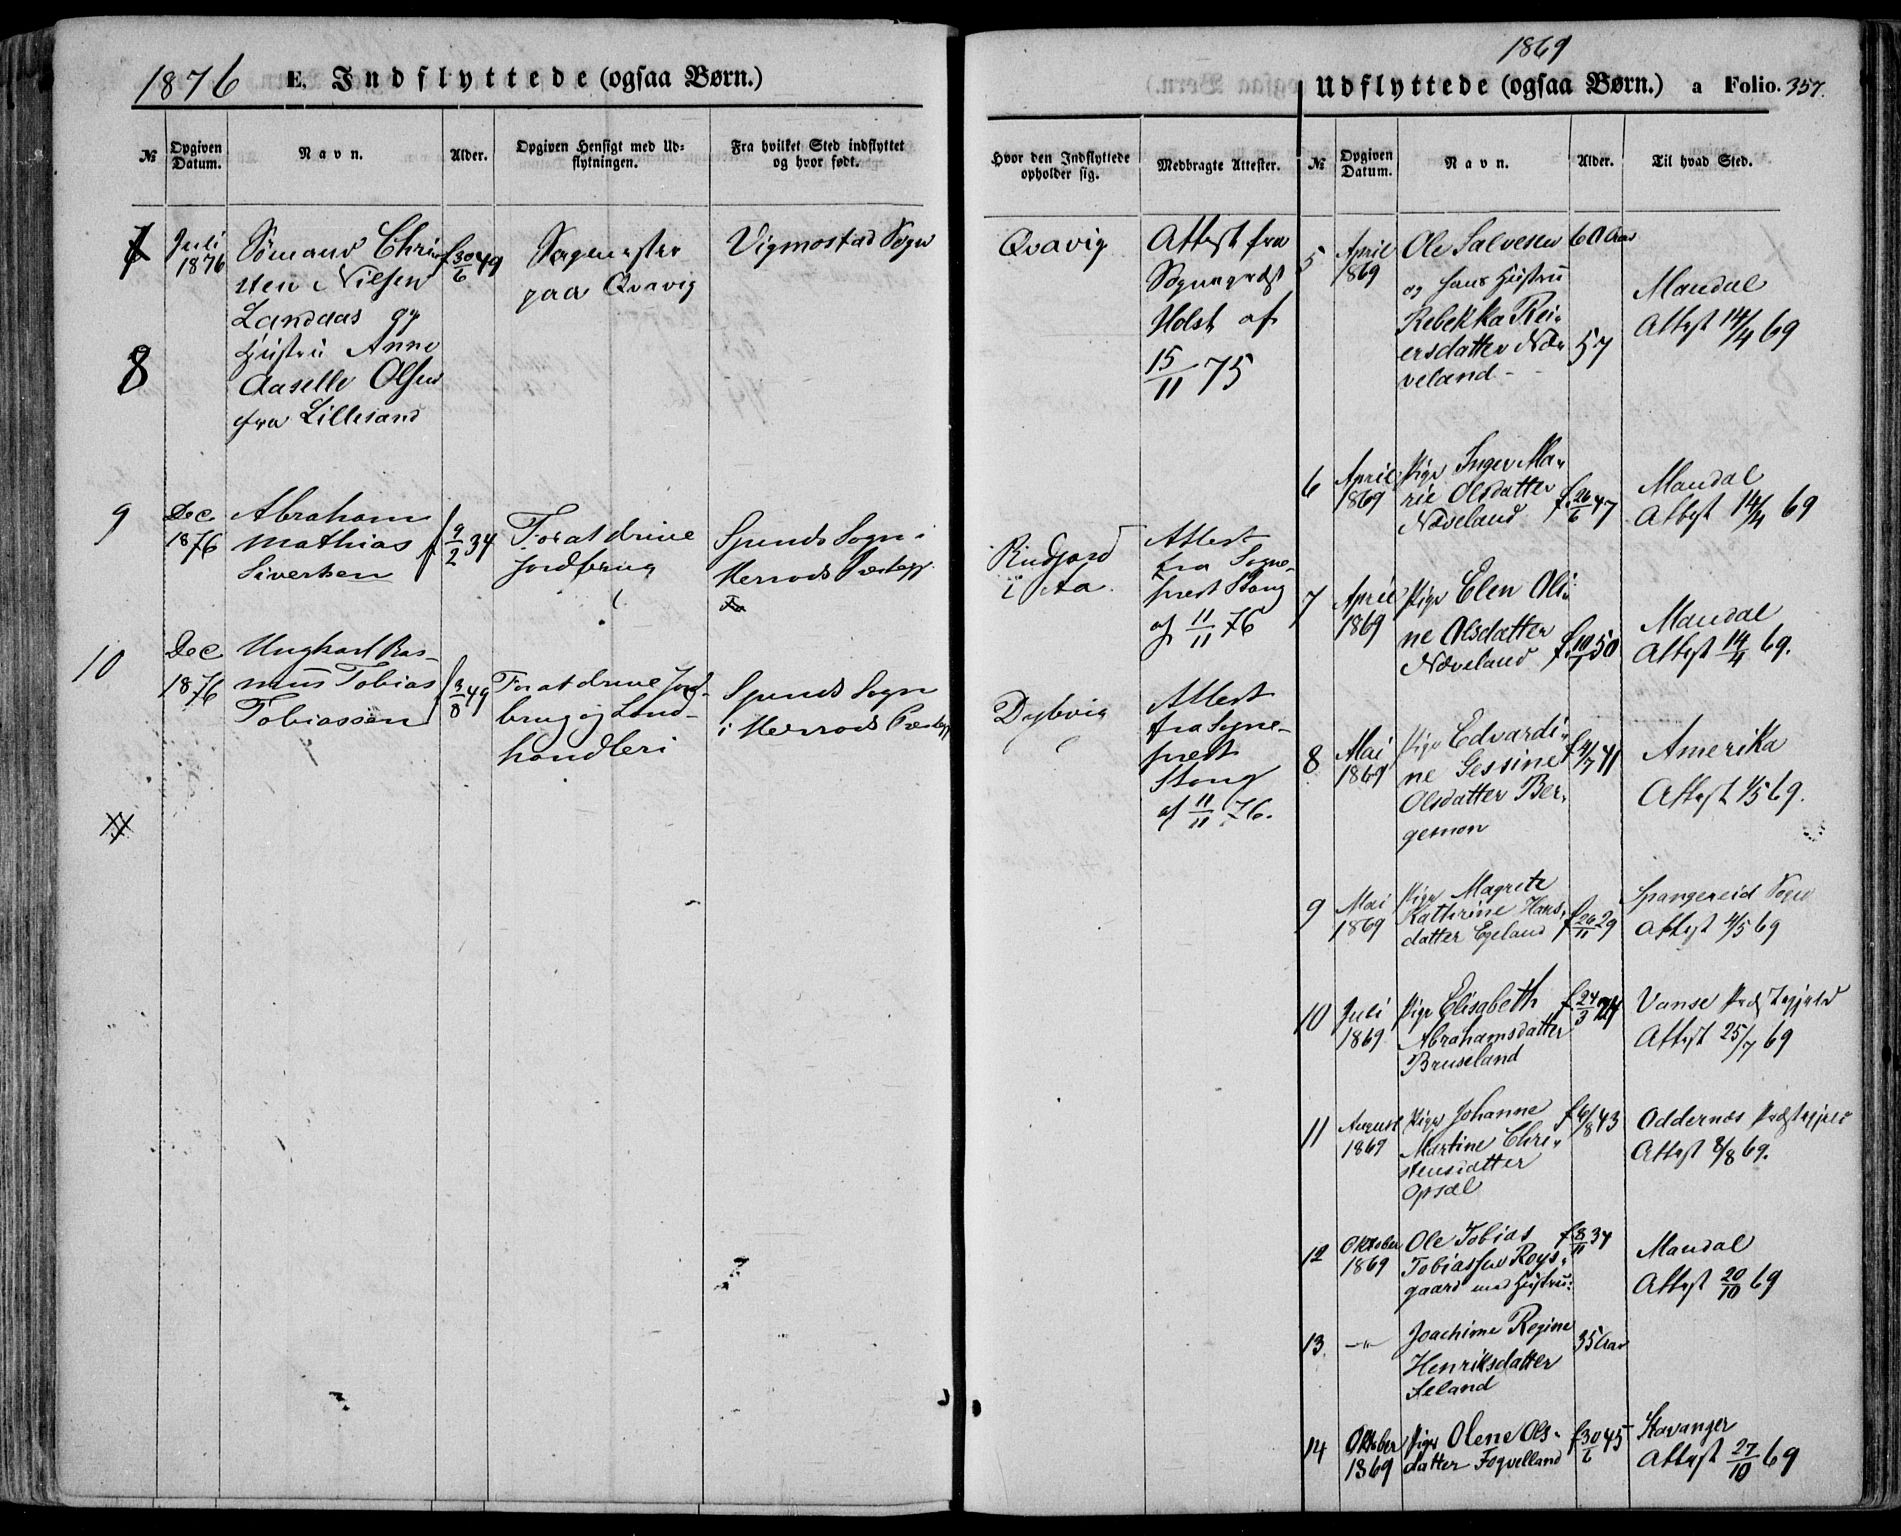 1876 E. Indflyttede (ogsaa Børn.)
№
Opgiven Datum.
Navn.
Alder.
Opgiven Hensigt med Ud=
flytningen.
Fra hvilket Sted indflyttet
og hvor født.
7
Juli
1876
Sømand Chri=
sten Nilsen
Landaas og
Hustru Anne
Aaselle Olsen
fra Lillesand
8
f 30/6 49
paa Qvavig
Vigmostad Sogn
9
Dec
1876
Abraham
Mathias
Sivertsen
f 9/2 34
For at drive
Jordbrug
Spinds Sogn i
Herrods Præstegj.
10
Dec
1876
Ungkarl Ras-
mus Tobias
Tobiassen
f 3/8 49
For at drive Jord-
brug og Land-
handleri
Spinds Sogn
i Herrods Præstegj
Hvor den Indflyttede
opholder sig.
Medbragte Attester.
Qvavig
Attest fra
Sognepræst
Holst af
15/11 75
i Aa.
Attest
fra Sogne-
prest Stang
af 11/11 76
Dybvig
Attest
fra Sogne-
prest
Stang
af 11/11 76.
1869
Udflyttede (ogsaa Børn.) a Folio. 357.
№
Opgiven Datum.
Navn.
Alder.
Til hvad Sted.
5
April
1869
Ole Salvesen
og hans Hustru
Rebekka Rei=
ersdatter Næ=
veland
60 Aar
57
Mandal
Attest 14/4 69
6
April
1869
Pige Inger Ma=
rie Olsdatter
Næveland
f 26/6 47
Mandal
Attest 14/4 69
7
April
1869
Pige Elen Oli=
ne Olsdatter
Næveland
f 10/1 50
Mandal
Attest 14/4 69.
8
Mai
1869
Pige Edvardi=
ne Gessine
Olsdatter Ber=
gemon
f 4/7 41
Amerika
Attest 1/5 69.
9
Mai
1869
Pige Magrete
Kathrine Hans=
datter Egeland
f 26/11 29
Spangereid Sogn
Attest 4/5 69
10
Juli
1869
Pige Elisabeth
Abrahamsdatter
Bruseland
f 24/3 24
Vanse Præstegjeld
Attest 25/7 69
11
August
1869
Pige Johanne
Martine Chri=
stensdatter
Opsal
f 6/8 43
Oddernæs Præstegjeld
Attest 8/8 69.
12
Oktober
1869
Ole Tobias
Tobiassen Roys=
gaard med Hustru:
f 8/11 34
Mandal
Attest 20/10 69
13
-"-
Joachime Regine
Henriksdatter
35 Aar
14
Oktober
1869
Pige Olene Ols=
datter Foqvelland
f 30/6 45
Stavanger
Attest 27/10 69